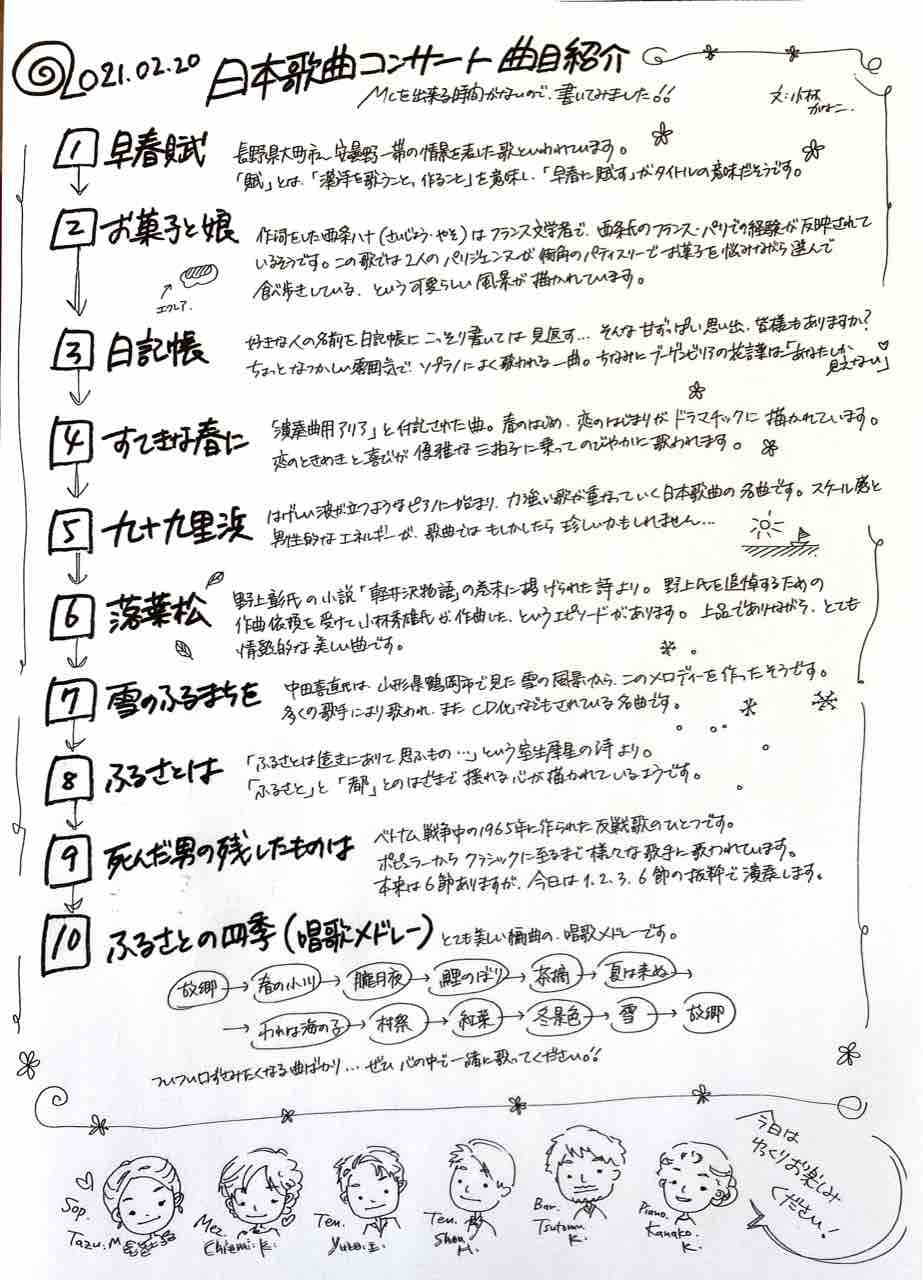 2021.02.20 日本歌曲コンサート 曲目紹介
MCを出来る時間がないので、書いてみました!!
文:小林
かなこ
1 早春賦
長野県大町市〜安曇野一帯の情景を表した歌といわれています。
「賦」とは、「漢詩を歌うこと、作ること」を意味し、「早春に賦す」がタイトルの意味だそうです。
2 お菓子と娘
作詞をした西条八十(さいじょう・やそ)はフランス文学者で、西条氏のフランス・パリでの経験が反映されて
いるそうです。この歌では2人のパリジェンヌが街角のパティスリーでお菓子を悩みながら選んで
食べ歩きしている、という可愛らしい風景が描かれています。
エクレア
3 日記帳
好きな人の名前を日記帳にこっそり書いては見返す…そんな甘ずっぱい思い出、皆様もありますか?
ちょっとなつかしい雰囲気で、ソプラノによく歌われる一曲。ちなみにブーゲンビリアの花言葉は「あなたしか
見えない」
4 すてきな春に
「演奏曲用アリア」と付記された曲。春のはじめ、恋のはじまりがドラマチックに描かれています。
恋のときめきと喜びが優雅な三拍子に乗ってのびやかに歌われます。
5 九十九里浜
はげしい波が立つようなピアノに始まり、力強い歌が重なっていく日本歌曲の名曲です。スケール感と
男性的なエネルギーが、歌曲ではもしかしたら珍しいかもしれません…
6 落葉松
野上彰氏の小説「軽井沢物語」の巻末に掲げられた詩より。野上氏を追悼するための
作曲依頼を受けて小林秀雄氏が作曲した、というエピソードがあります。上品でありながら、とても
情熱的な美しい曲です。
7 雪のふるまちを
中田喜直氏は、山形県鶴岡市で見た雪の風景から、このメロディーを作ったそうです。
多くの歌手により歌われ、またCD化などもされている名曲です。
8 ふるさとは
「ふるさとは遠きにありて思ふもの…」という室生犀星の詩より。
「ふるさと」と「都」とのはざまで揺れる心が描かれているようです。
9 死んだ男の残したものは
ベトナム戦争中の1965年に作られた反戦歌のひとつです。
ポピュラーからクラシックに至るまで様々な歌手に歌われています。
本来は6節ありますが、今日は1.2.3.6節の抜粋で演奏します。
10 ふるさとの四季(唱歌メドレー) とても美しい編曲の、唱歌メドレーです。
故郷→春の小川→朧月夜→鯉のぼり→茶摘→夏は来ぬ→
→われは海の子→村祭→紅葉→冬景色→雪→故郷
ついつい口ずさみたくなる曲ばかり…ぜひ心の中で一緒に歌ってください!!
今日は
ゆっくりお楽しみ
ください!
Sop.
Tazu.M
Mez.
Chiemi.K.
Ten.
Yuto.I.
Ten.
Shou.
M.
Bar.
Tsutomu.
K.
Piano.
Kanako.
K.